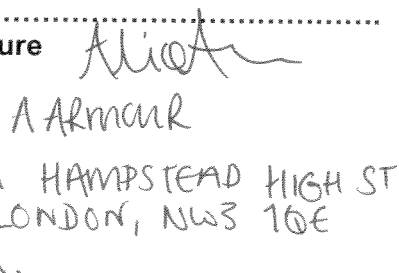 ure
A ARMOUR
HAMPSTEAD HIGH ST
LONDON, NW3 1QE